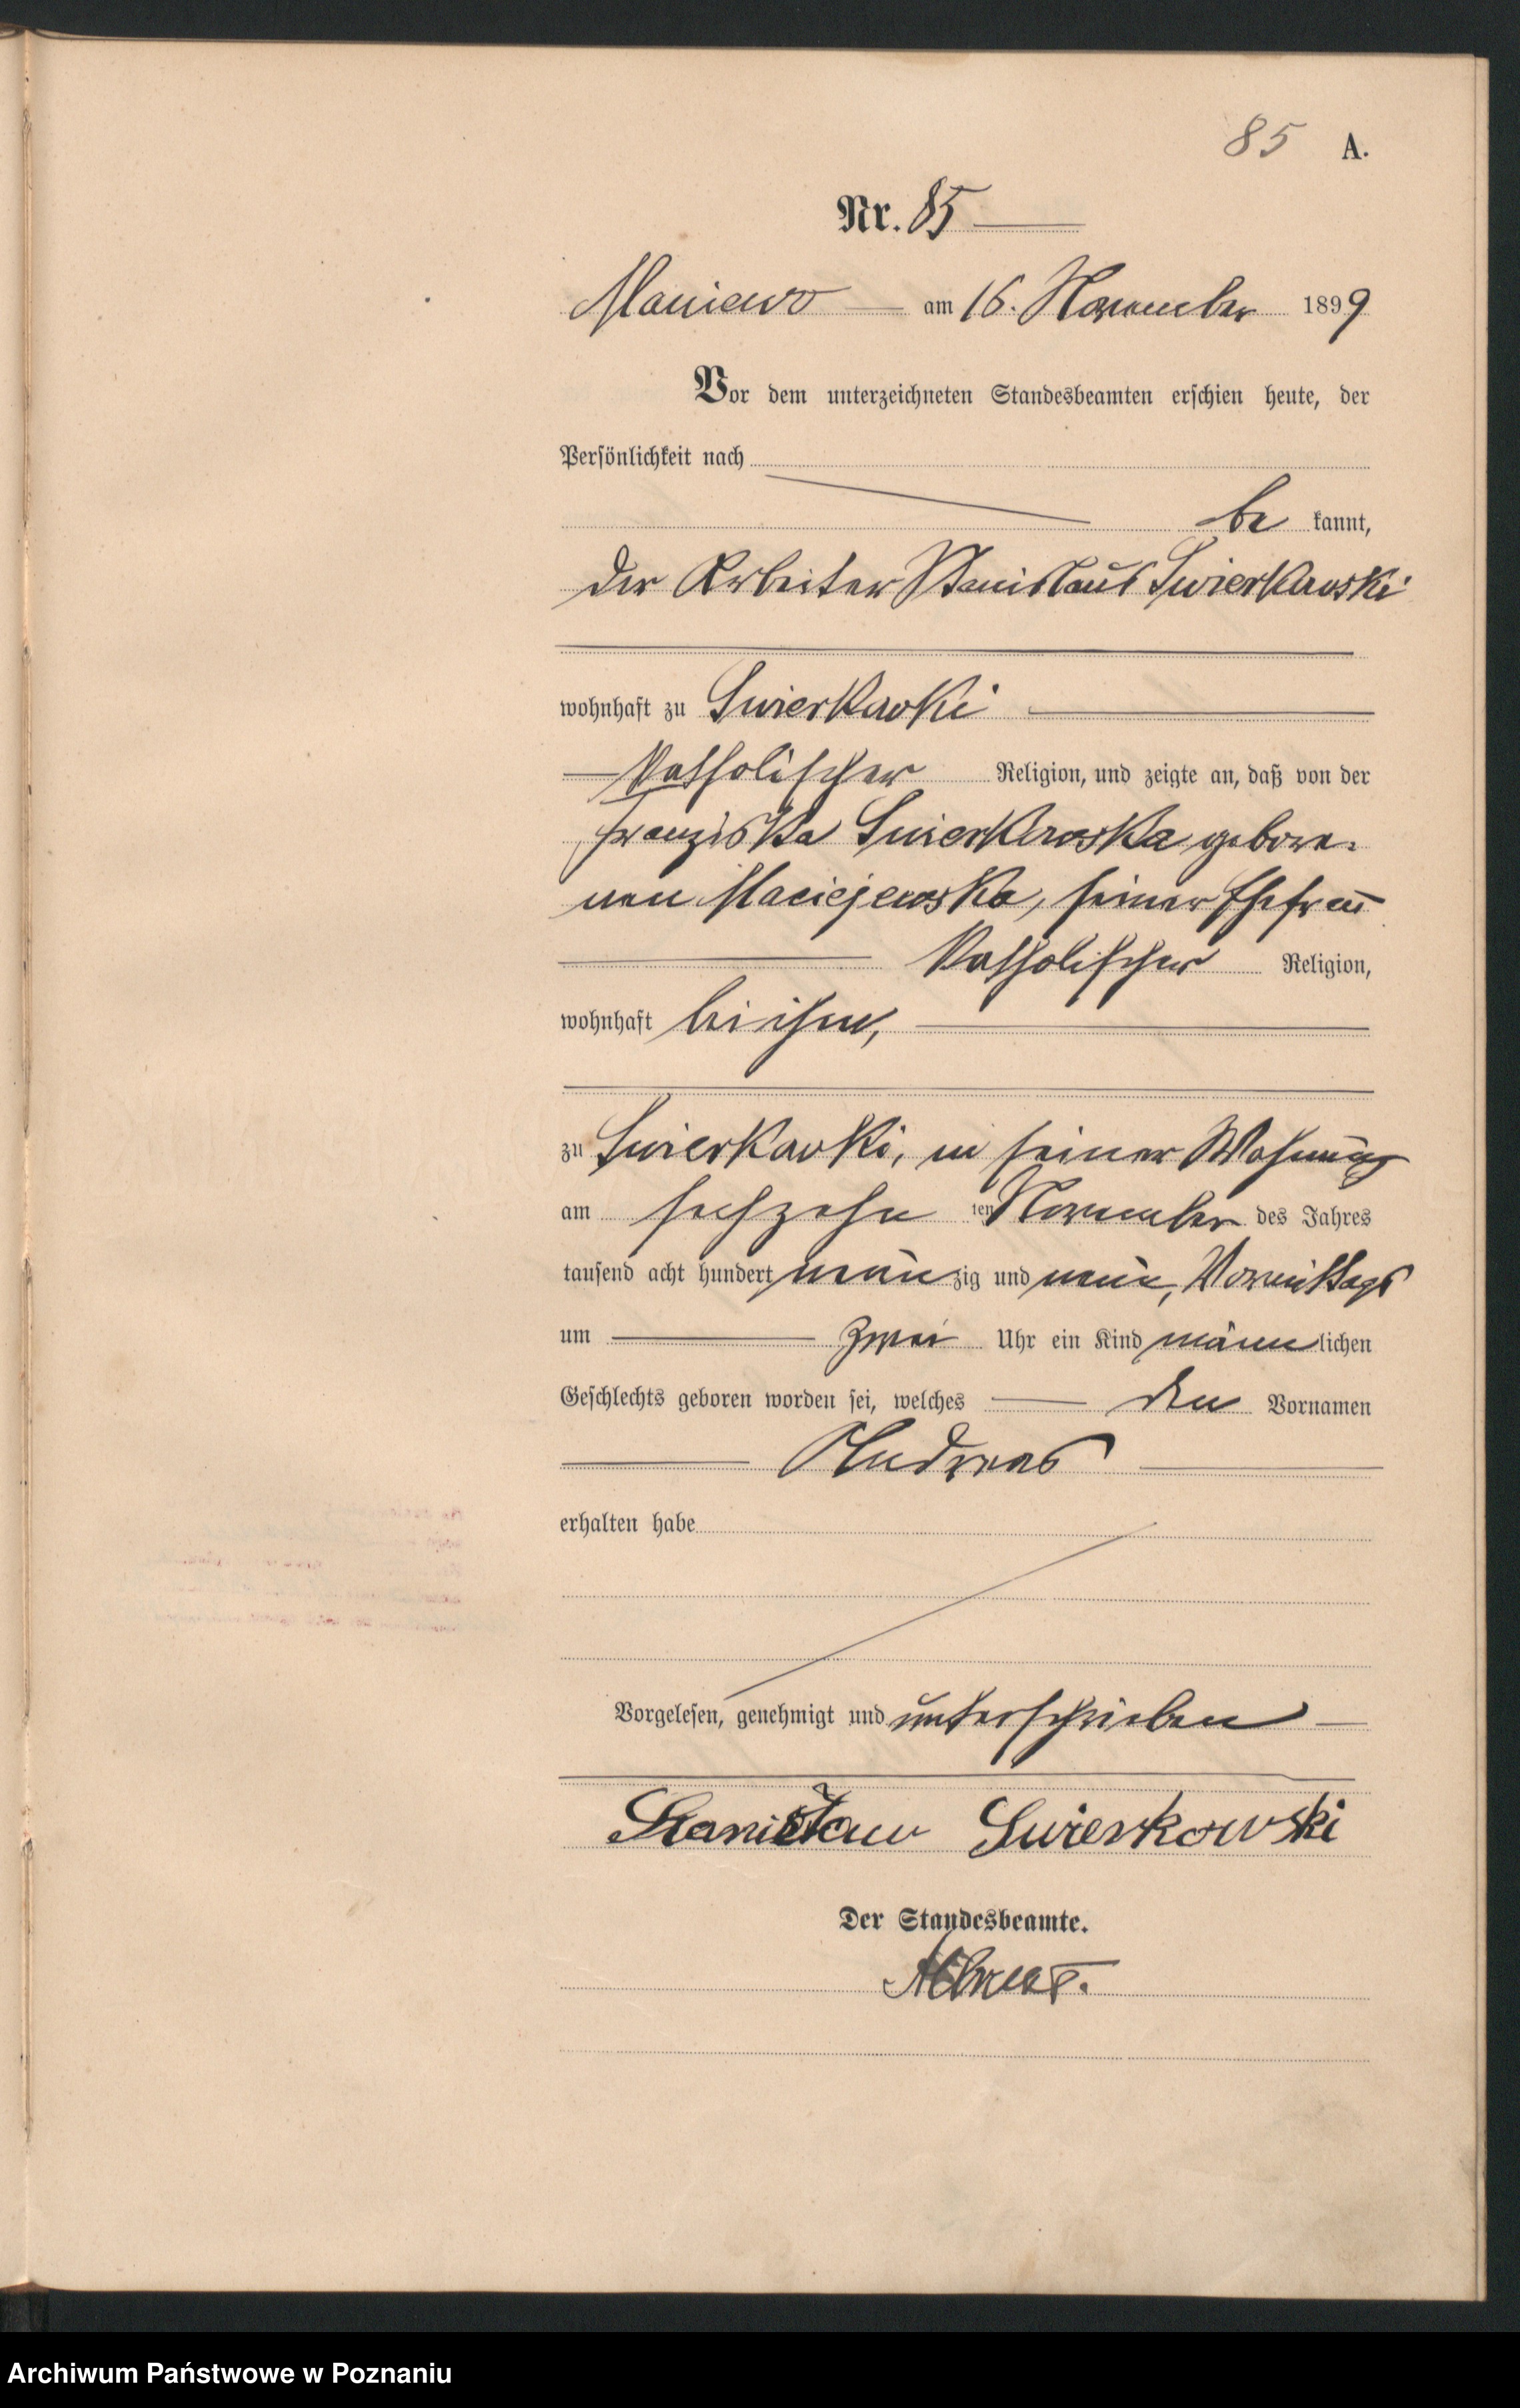 85 A.
Nr. 85
Maniewo am 16. November 1899
Vor dem unterzeichneten Standesbeamten erschien heute, der
Persönlichkeit nach
be kannt,
der Arbeiter Stanislaus Swierkowski
wohnhaft zu Swierkowki
katholischer Religion, und zeigte an, daß von der
Franziska Swierkowska gebore-
nen Maciejewska, seiner Ehefrau
katholischer Religion,
wohnhaft bei ihm,
zu Swierkowki, in seiner Wohnung
am sechzehn ten November des Jahres
tausend acht hundert neunzig und neun, Vormittags
um zwei Uhr ein Kind männlichen
Geschlechts geboren worden sei, welches den Vornamen
Andreas
erhalten habe
Vorgelesen, genehmigt und unterschrieben
Stanisław Swierkowski
Der Standesbeamte.
Archiwum Państwowe w Poznaniu